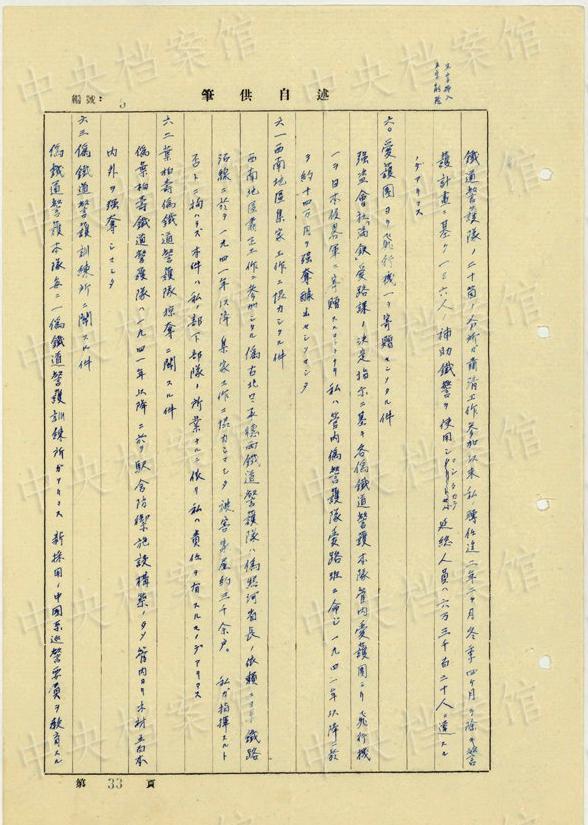 述自供筆
編號: 5
五字挿入
五字削除
鐵道警護隊ノ二十箇ノ分所カ肅清工作参加以来私ノ轉任迄二年二ヶ月冬季四ケ月ヲ除キ警
護計畫ニ基ケ一三六人ノ補助鐵警ヲ使用シ延総人員ハ六万三千百二十人ニ達スル
ノデアリマス
六〇 愛護團ヨリ飛行機一ヲ寄贈セシメタル件
強盗會社「満鉄」愛路課ノ決定指示ニ基キ各偽鐵道警護本隊管内愛護團ヨリ飛行機
一ヲ日本侵畧軍ニ寄贈スル 私ハ管内偽警護隊愛路班ニ命シ一九四一年以降ニ於
テ約十四万円ヲ強奪醵出セシメマシタ
六一 西南地區集家工作ニ協力シタル件
西南地區粛正工作ニ参加シタル偽古北口、承德両鐵道警護隊ハ偽熱河省長ノ依頼ニ 鐵路
沿線ニ於テ一九四一年以降集家工作ニ協力シマシタ 被害家屋約三千余戸。 私カ指揮スルト
否トニ拘ハラズ本件ハ私ノ部下部隊ノ所業ナルニ依リ私ハ責任ヲ有スルモノデアリマス
六二 葉柏壽偽鐵道警護隊掠奪ニ関スル件
偽葉柏壽鐵道警護隊ハ一九四一年以降ニ於テ駅舎防禦施設構築ノタメ管内ヨリ木材五百本
内外ヲ強奪シマシタ
六三 偽鐵道警護訓練所ニ関スル件
偽鐵道警護本隊毎ニ一偽鐵道警護訓練所ガアリマス 新採用ノ中國系巡警要員ヲ教育スル
第 33 頁
中央档案馆